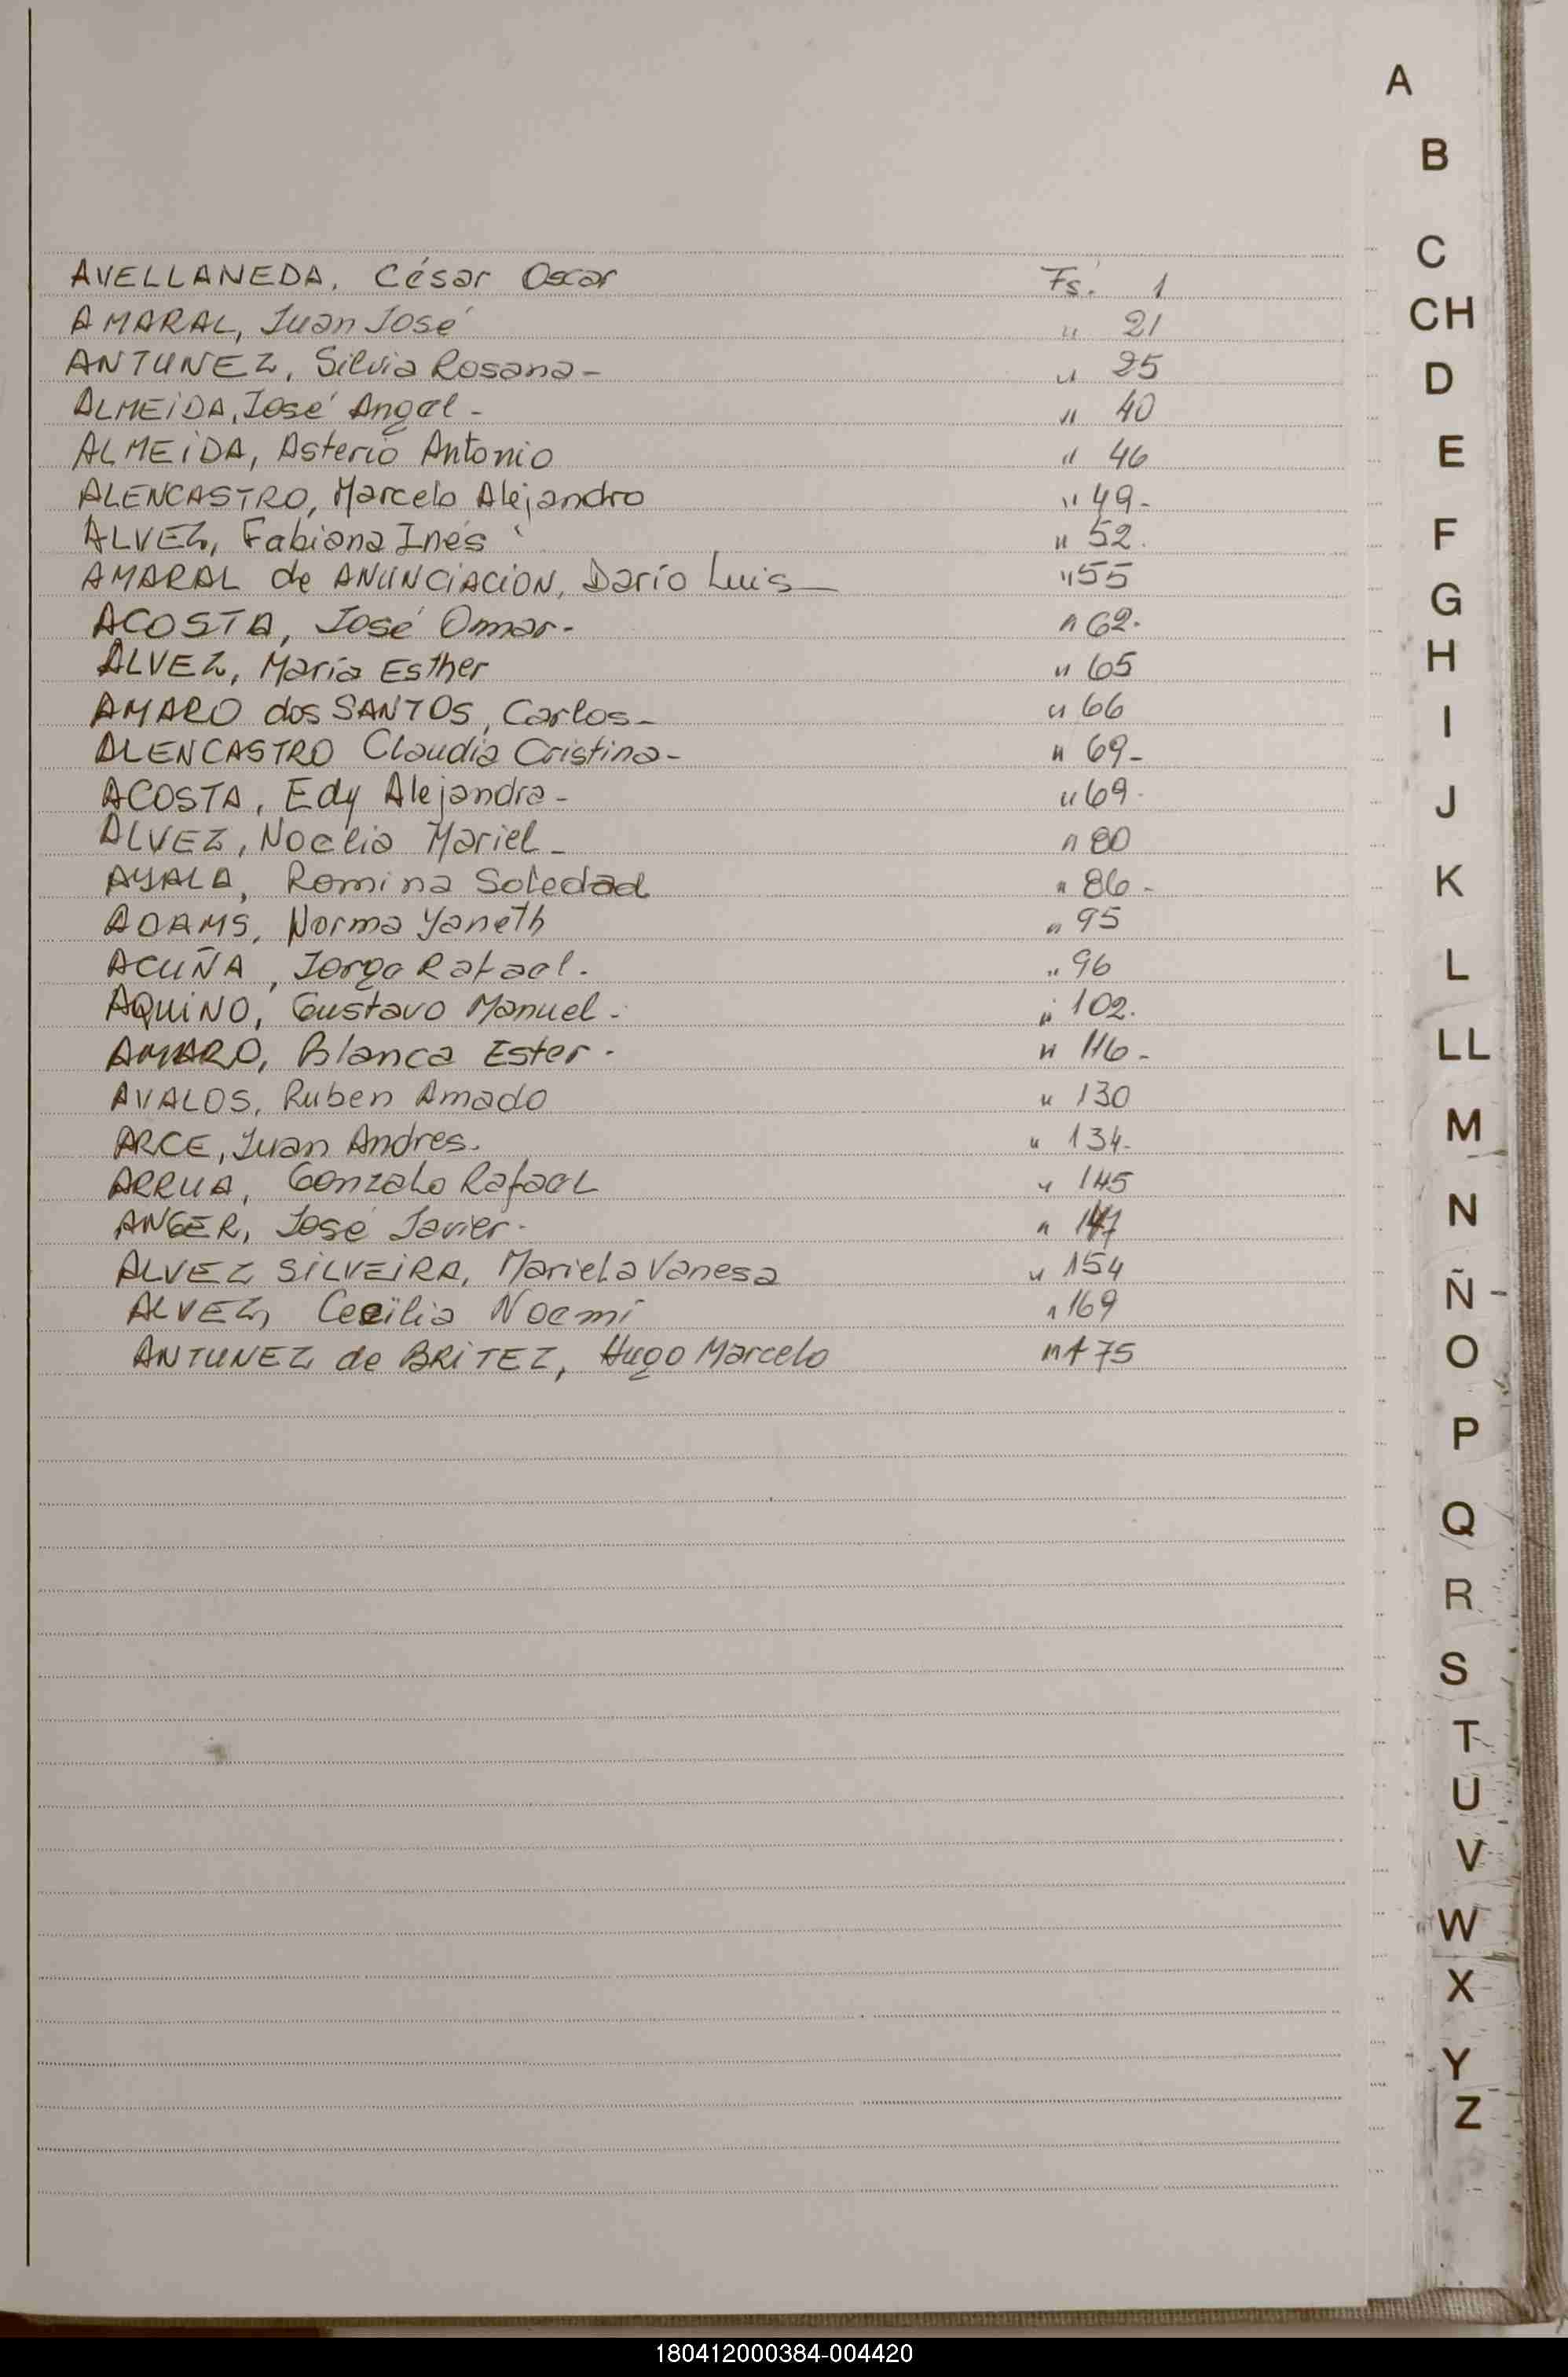 AVELLANEDA, César Oscar Fs. 1
AMARAL, Juan José " 21
ANTUNEZ, Silvia Rosana - " 25
ALMEIDA, José Angel - " 40
ALMEIDA, Asterio Antonio " 46
ALENCASTRO, Marcelo Alejandro " 49-
ALVEZ, Fabiana Inés " 52.
AMARAL de ANUNCIACION, Darío Luis - " 55
ACOSTA, José Omar - " 62.
ALVEZ, María Esther " 65
AMARO dos SANTOS, Carlos - " 66
ALENCASTRO Claudia Cristina - " 69-
ACOSTA, Edy Alejandra - " 69-
ALVEZ, Noelia Mariel - " 80
AYALA, Romina Soledad " 86-
ADAMS, Norma Yaneth " 95
ACUÑA, Jorge Rafael. " 96
AQUINO, Gustavo Manuel - " 102.
AMARO, Blanca Ester - " 116-
AVALOS, Ruben Amado " 130
ARCE, Juan Andres. " 134-
ARRUA, Gonzalo Rafael " 145
ANGER, José Javier - " 147
ALVEZ SILVEIRA, Mariela Vanesa " 154
ALVEZ, Cecilia Noemí " 169
ANTUNEZ de BRITEZ, Hugo Marcelo " 175
A
B
C
CH
D
E
F
G
H
I
J
K
L
LL
M
N
Ñ
O
P
Q
R
S
T
U
V
W
X
Y
Z
180412000384-004420